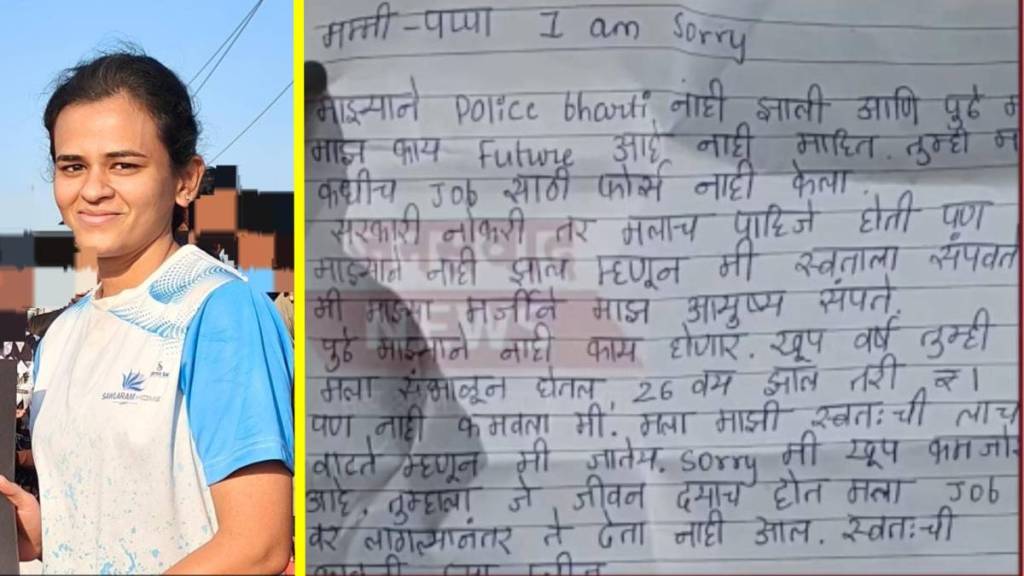 मम्मी-पप्पा I am Sorry
माझ्याने Police bharti नाही झाली आणि पुढे
माझ काय Future आहे नाही माहित. तुम्ही
कधीच Job साठी फोर्स नाही केला.
सरकारी नोकरी तर मलाच पाहिजे होती पण
माझ्याने नाही झाल म्हणून मी स्वताला संपवत
मी माझ्या मर्जीने माझ आयुष्य संपते.
पुढे माझ्याने नाही काय होणार. खूप वर्ष तुम्ही
मला संभाळून घेतल, 26 वय झाल तरी ₹1
पण नाही कमवला मी. मला माझी स्वतःची लाच
वाटते म्हणून मी जातेय. sorry मी खूप कमजोर
आहे. तुम्हाला जे जीवन दयाच होत मला Job
वर लागल्यानंतर ते देता नाही आल. स्वतःची
NEWS